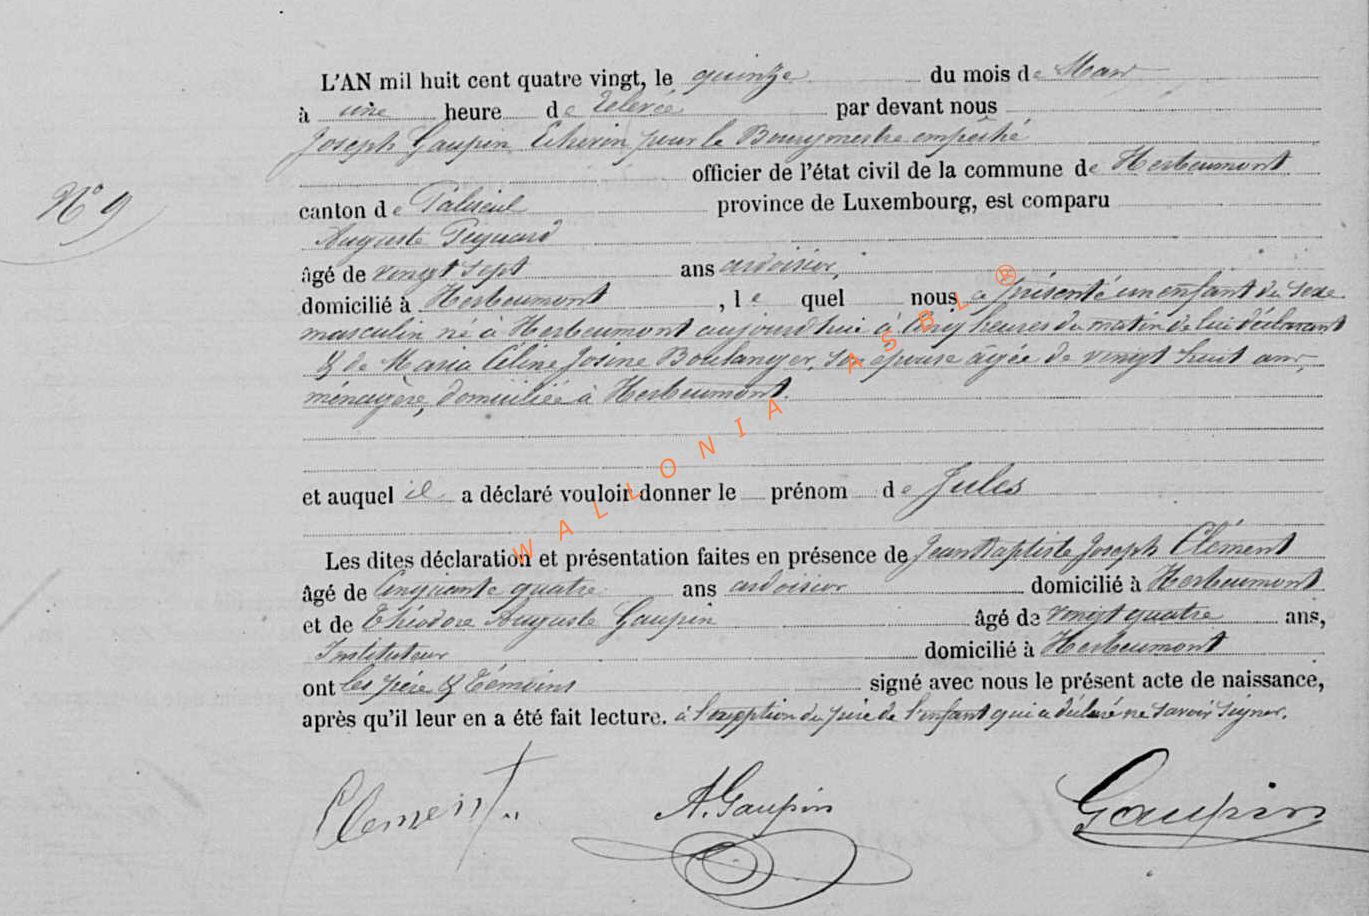 L'AN mil huit cent quatre vingt, le quinze du mois de Mars
à une heure de relevée par devant nous
Joseph Gaupin Echevin pour le Bourgmestre empêché
officier de l'état civil de la commune de Herbeumont
N° 9
canton de Paliseul province de Luxembourg, est comparu
Auguste Pignard
âgé de vingt sept ans ardoisier
domicilié à Herbeumont, le quel nous a présenté un enfant du sexe
masculin né à Herbeumont aujourd'hui à cinq heures du matin de lui déclarant
& de Maria Céline Josine Boulanger, son épouse âgée de vingt huit ans,
ménagère, domiciliée à Herbeumont.
et auquel il a déclaré vouloir donner le prénom de Jules
Les dites déclaration et présentation faites en présence de Jean Baptiste Joseph Clément
âgé de Cinquante quatre ans ardoisier domicilié à Herbeumont
et de Théodore Auguste Gaupin âgé de vingt quatre ans,
Instituteur domicilié à Herbeumont
ont les père & témoins signé avec nous le présent acte de naissance,
après qu'il leur en a été fait lecture. à l'exception du père de l'enfant qui a déclaré ne savoir signer.
Clement A. Gaupin Gaupin
WALLONIA ASBL ®